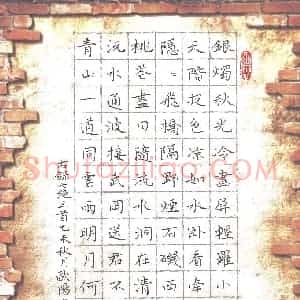 銀燭秋光冷畫屏輕羅小
天階夜色涼如水卧看牽
隱〻飛橋隔野煙石磯西
桃花盡日隨流水洞在清
沅水通波接武岡送君不
青山一道同雲雨明月何
古詩七絕三首乙未秋歐陽